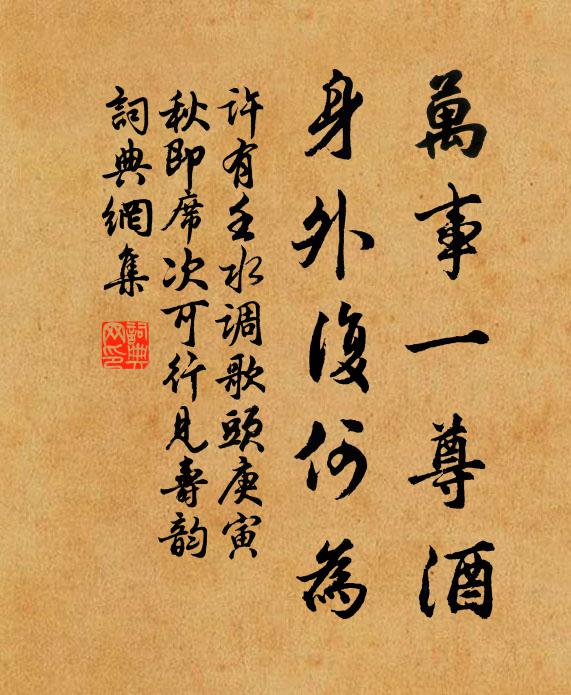 萬事一尊酒
身外復何為
許有壬水調歌頭庚寅
秋即席次可行見壽韵
詞典網集
詞典网印